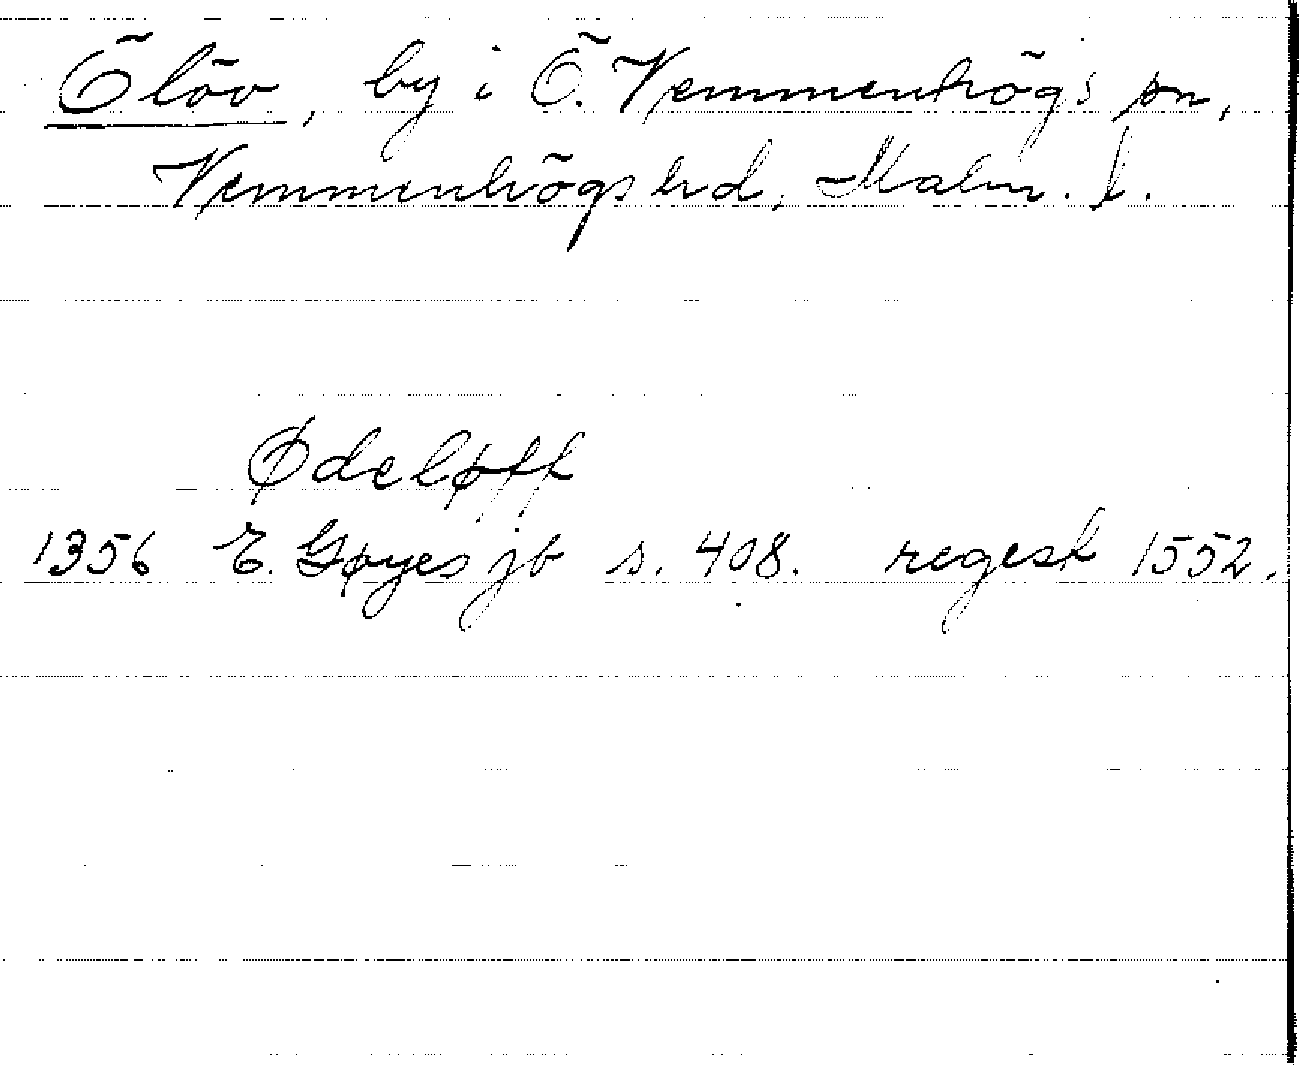 Ölöv, by i Ö. Vemmenhögs sn,
Vemmenhögs hd, Malm. l.
Ødeløff
1356 E. Gøyes jb s. 408. regest 1552.